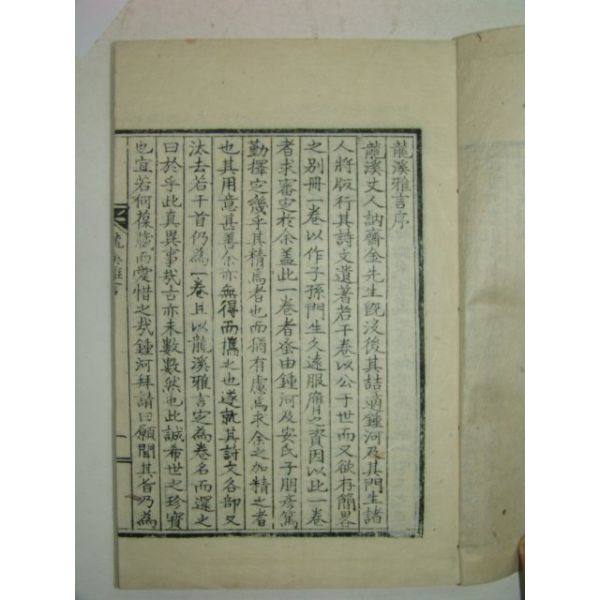 龍溪雅言序
龍溪丈人訥齋金先生旣沒後其詰適鍾河及其門生諸
人將版行其詩文遺著若干卷以公于世而又欲存簡畧
之別冊一卷以作子孫門生久遠服膺之資因以此一卷
者求審定於余盖此一卷者蚤由鍾河及安氏子朋彥篤
勤擇定幾乎其精焉者也而猶有慮焉求余之加精之者
也其用意甚善余亦無得而撝之也遂就其詩文各部又
汰去若干首仍爲一卷且以龍溪雅言定爲卷名而還之
曰於乎此眞異事哉古亦未數數然也此誠希世之珍寶
也宜若何葆藏而愛惜之哉鍾河拜請曰願聞其旨乃爲
龍溪雅言